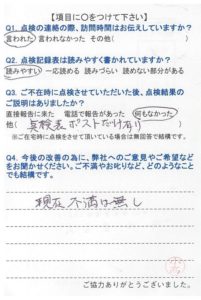 【項目に○をつけて下さい】
Q1. 点検の連絡の際、訪問時間はお伝えしていますか?
言われた 言われなかった その他( )
Q2. 点検記録表は読みやすく書かれていますか?
読みやすい 一応読める 読みづらい 読めない部分がある
Q3. ご不在時に点検させていただいた後、点検結果の
ご説明はありましたか?
直接報告に来た 電話で報告があった 何もなかった
他( 点検表ポストだけ有り )
※ご在宅時に点検をさせて頂いている場合は無回答で結構です。
Q4. 今後の改善の為に、弊社へのご意見やご希望など
をお聞かせください。ご不満やお叱りなど、どのようなこと
でも結構です。
現在不満は無し
ご協力ありがとうございました。